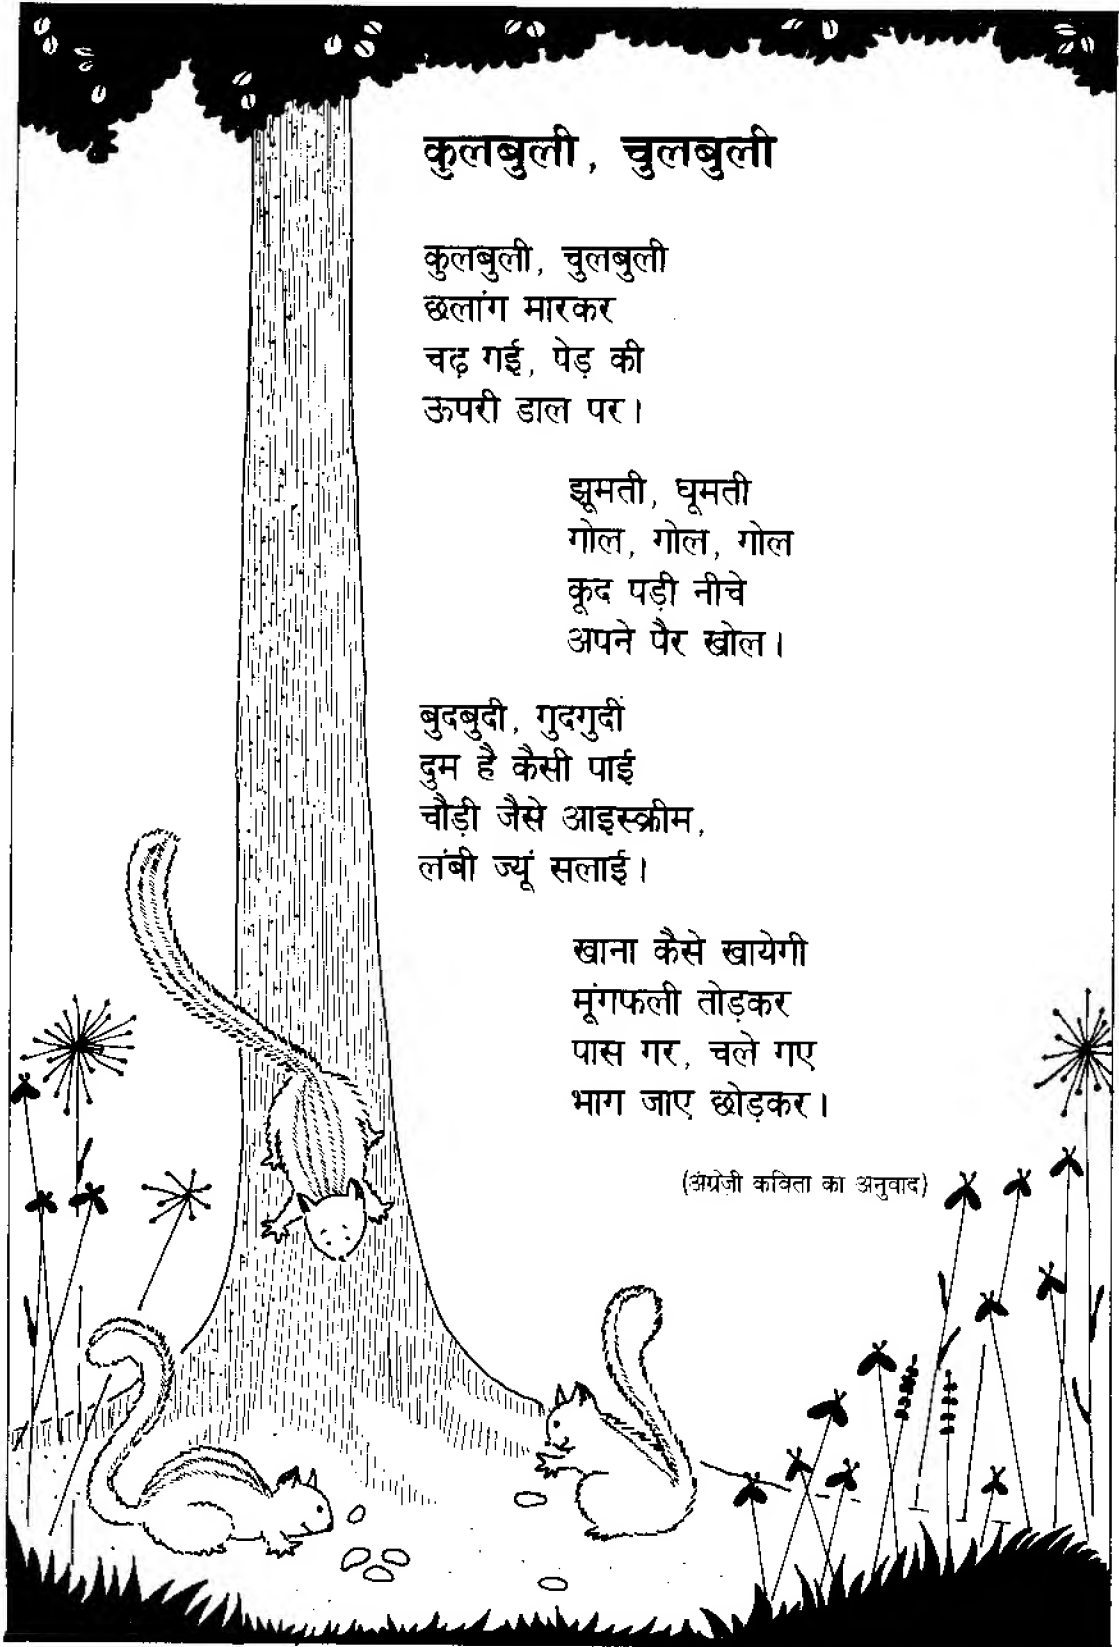 कुलबुली, चुलबुली
कुलबुली, चुलबुली
छलांग मारकर
चढ़ गई, पेड़ की
ऊपरी डाल पर।
झूमती, घूमती
गोल, गोल, गोल
कूद पड़ी नीचे
अपने पैर खोल।
बुदबुदी, गुदगुदीं
दुम है कैसी पाई
चौड़ी जैसे आइस्क्रीम,
लंबी ज्यूं सलाई।
खाना कैसे खायेगी
मूंगफली तोड़कर
पास गर, चले गए
भाग जाए छोड़कर।
(अंग्रेज़ी कविता का अनुवाद)